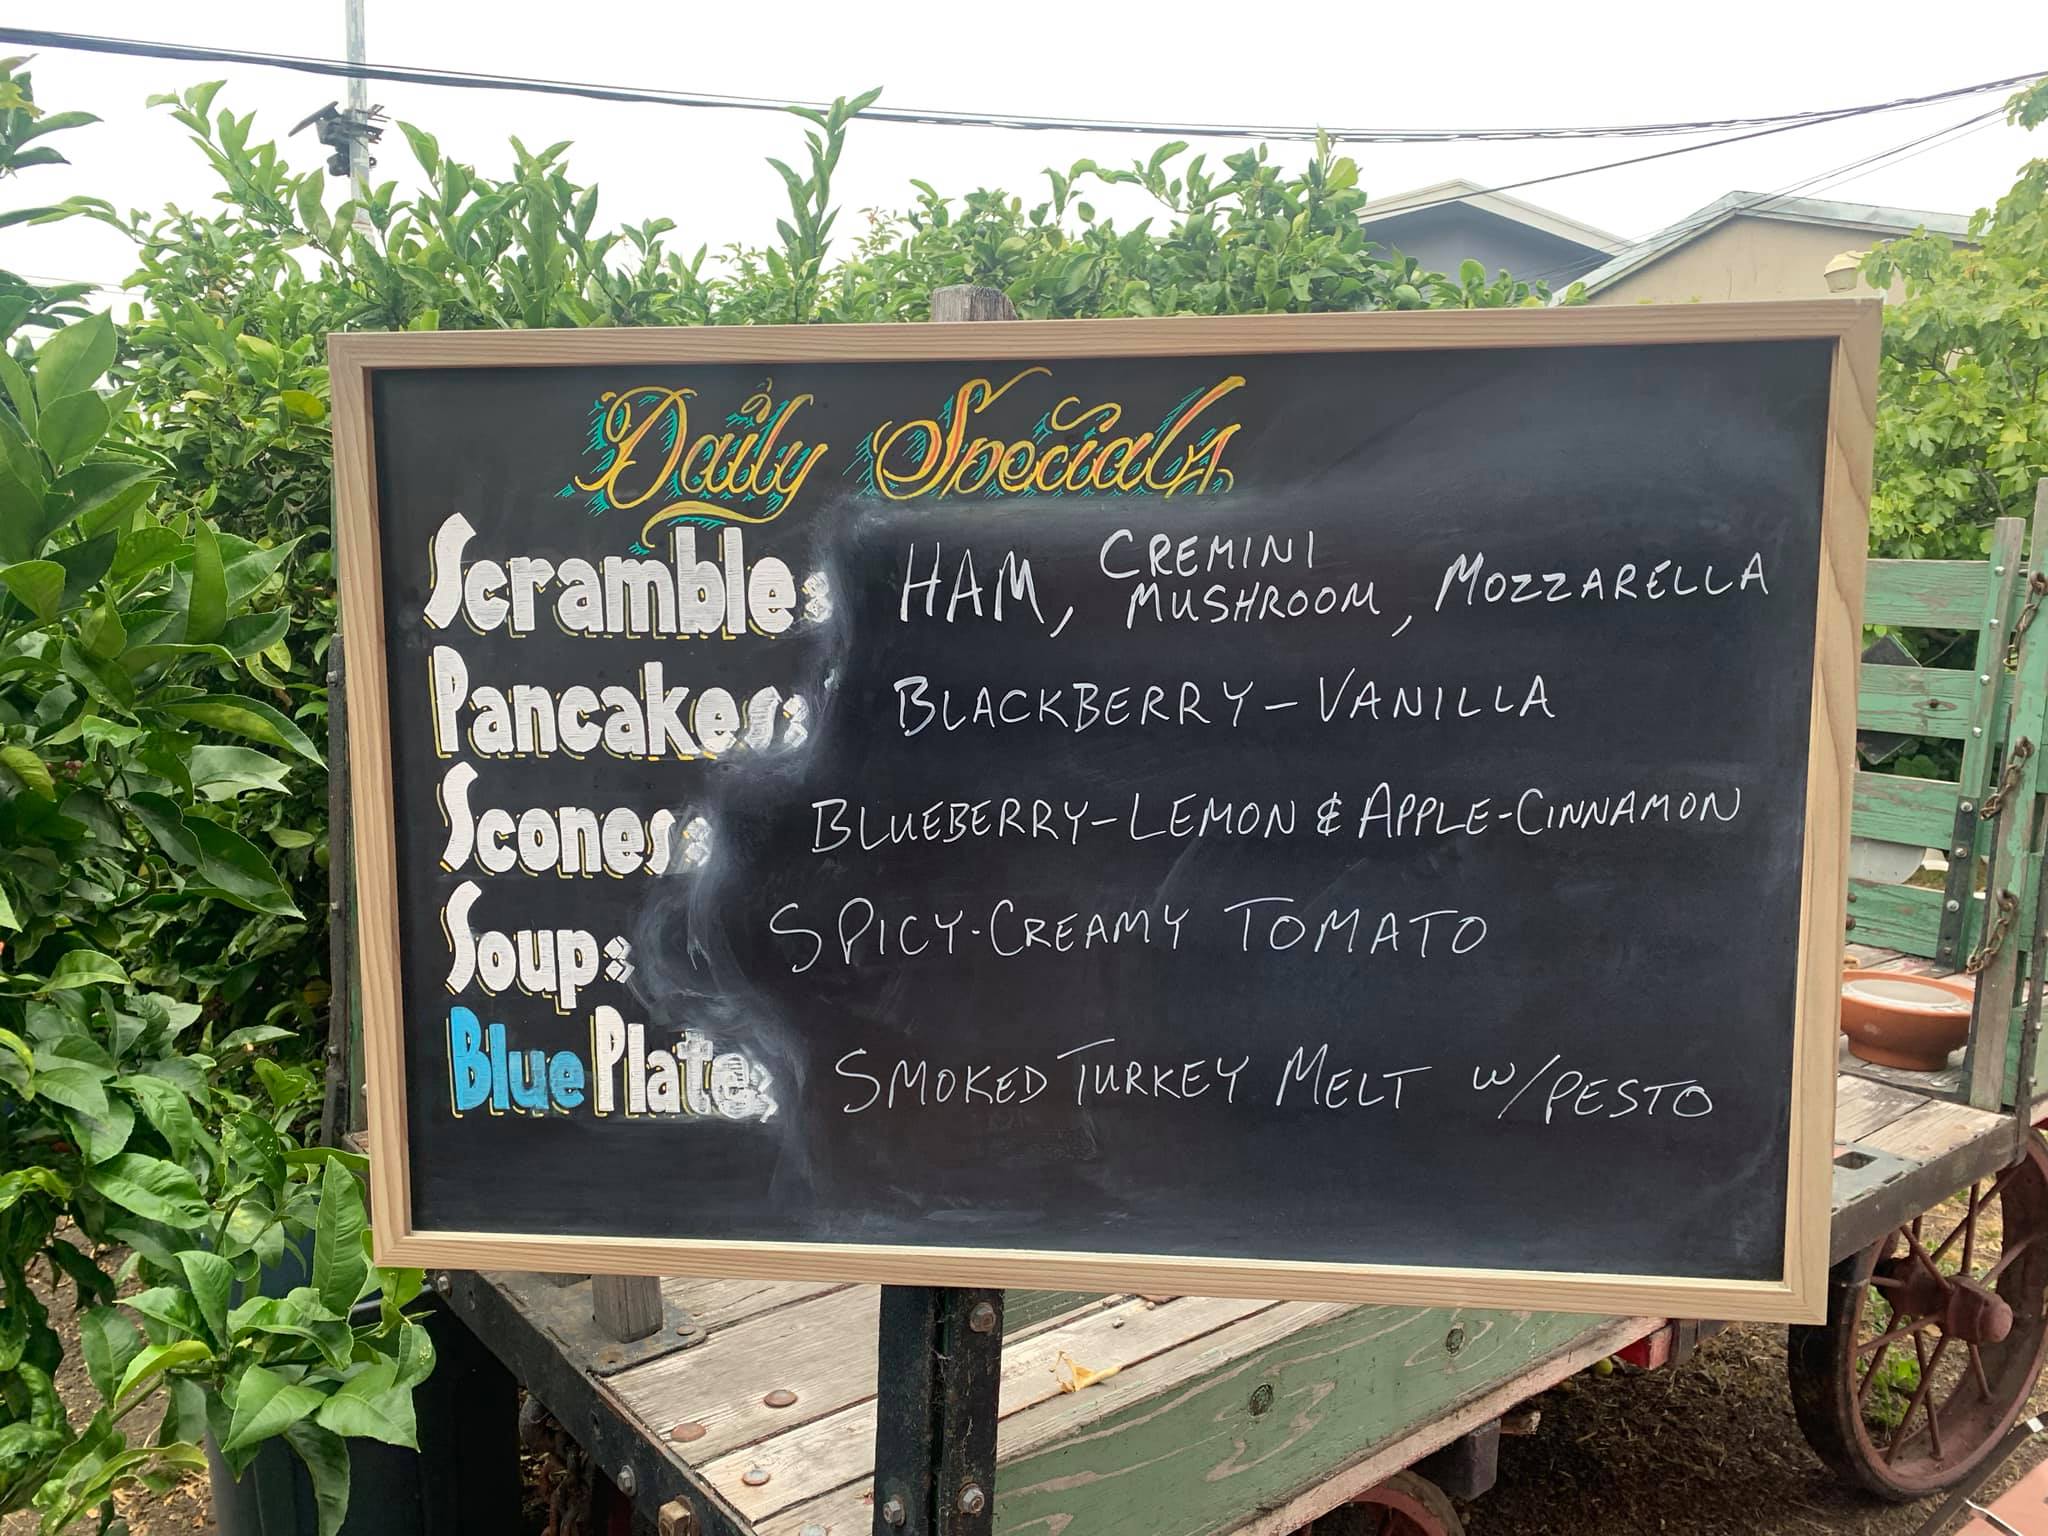 Daily Specials
Scramble: HAM, CREMINI MUSHROOM, MOZZARELLA
Pancakes: BLACKBERRY-VANILLA
Scones: BLUEBERRY-LEMON & APPLE-CINNAMON
Soup: SPICY-CREAMY TOMATO
Blue Plate: SMOKED TURKEY MELT W/PESTO